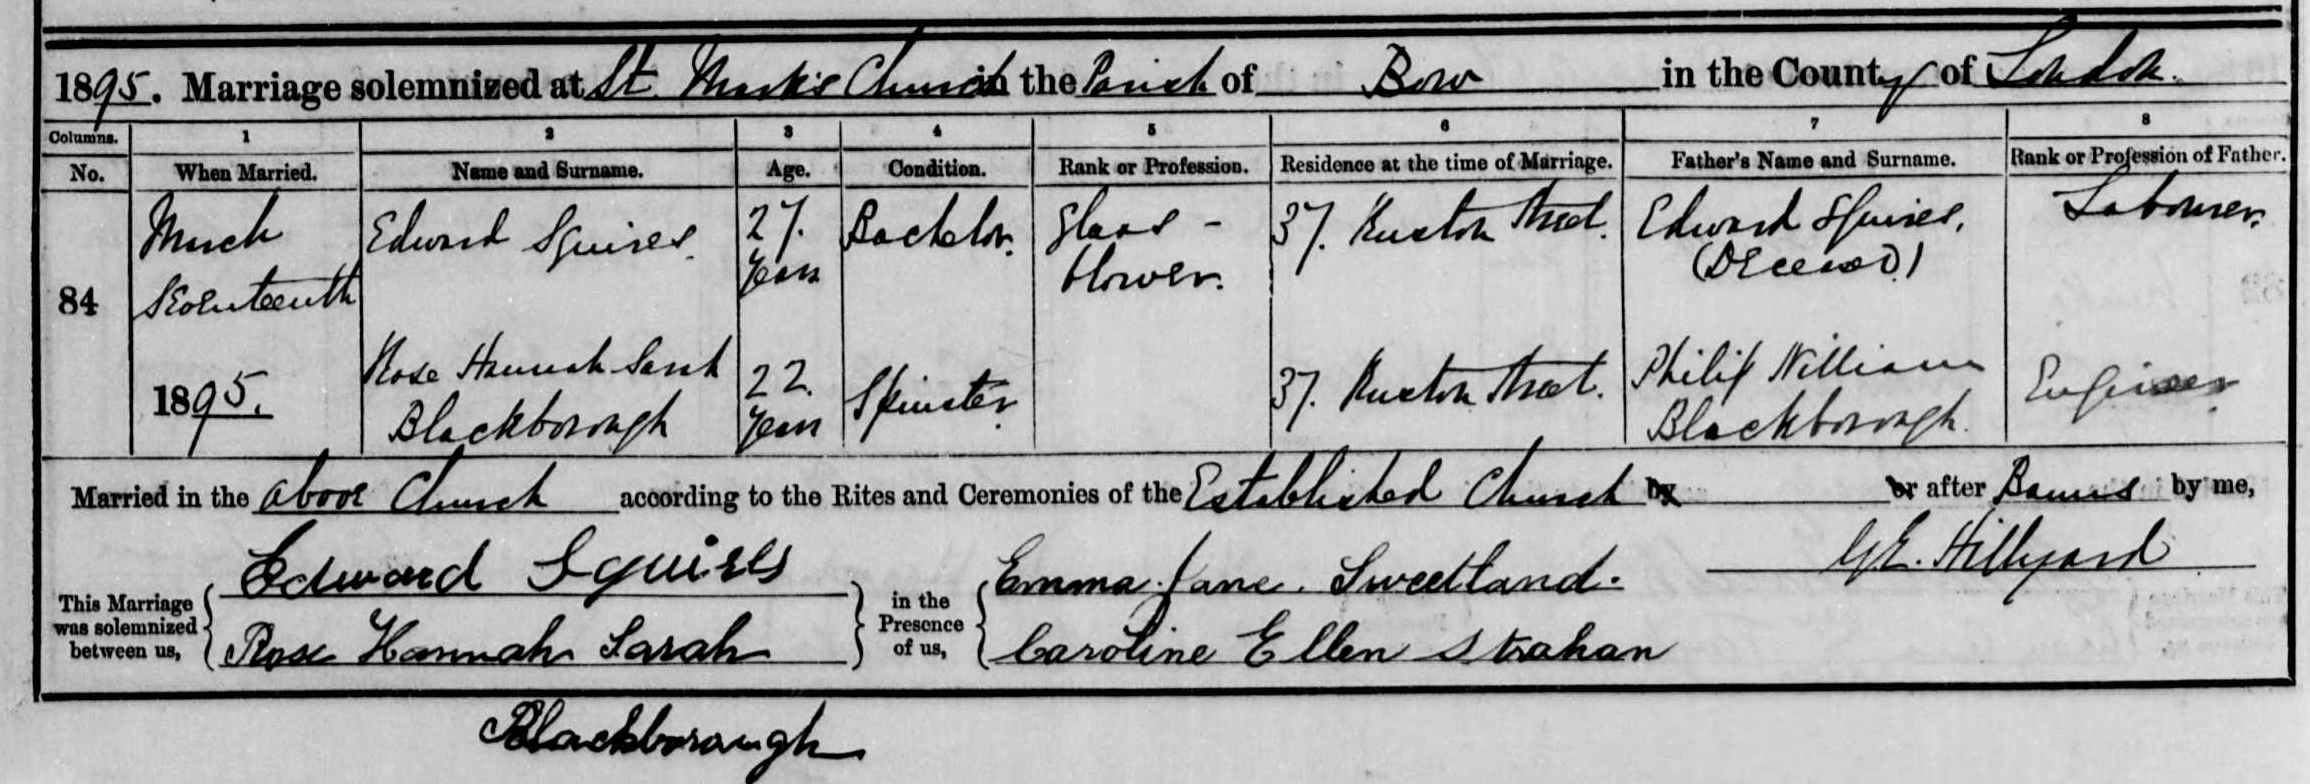 1895. Marriage solemnized at St Mark's Church in the Parish of Bow in the County of London.
Columns. 1 2 3 4 5 6 7 8
No. When Married. Name and Surname. Age. Condition. Rank or Profession. Residence at the time of Marriage. Father's Name and Surname. Rank or Profession of Father.
84
March
Seventeenth
1895.
Edward Squires
27.
years
Bachelor.
Glass-
blower.
37. Ruston Street.
Edward Squires.
(Deceased)
Labourer.
Rose Hannah Sarah
Blackborough
22
years
Spinster
37. Ruston Street.
Philip William
Blackborough.
Engineer
Married in the above Church according to the Rites and Ceremonies of the Established Church by or after Banns by me,
G.E. Hillyard
This Marriage
was solemnized
between us,
Edward Squires
Rose Hannah Sarah
Blackborough
in the
Presence
of us,
Emma Jane. Sweetland.
Caroline Ellen Strahan